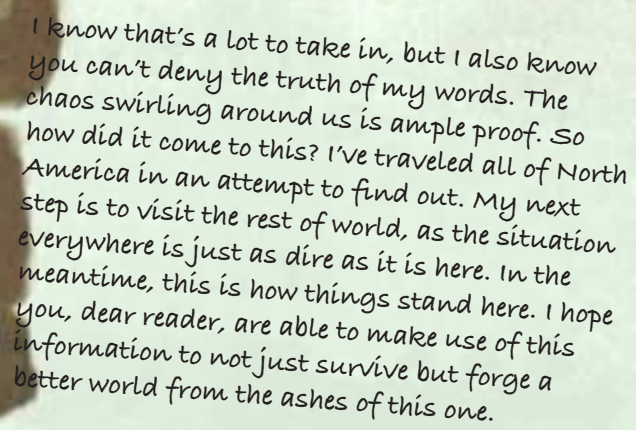 I know that's a lot to take in, but I also know
you can't deny the truth of my words. The
chaos swirling around us is ample proof. So
how did it come to this? I've traveled all of North
America in an attempt to find out. My next
step is to visit the rest of world, as the situation
everywhere is just as dire as it is here. In the
meantime, this is how things stand here. I hope
you, dear reader, are able to make use of this
information to not just survive but forge a
better world from the ashes of this one.